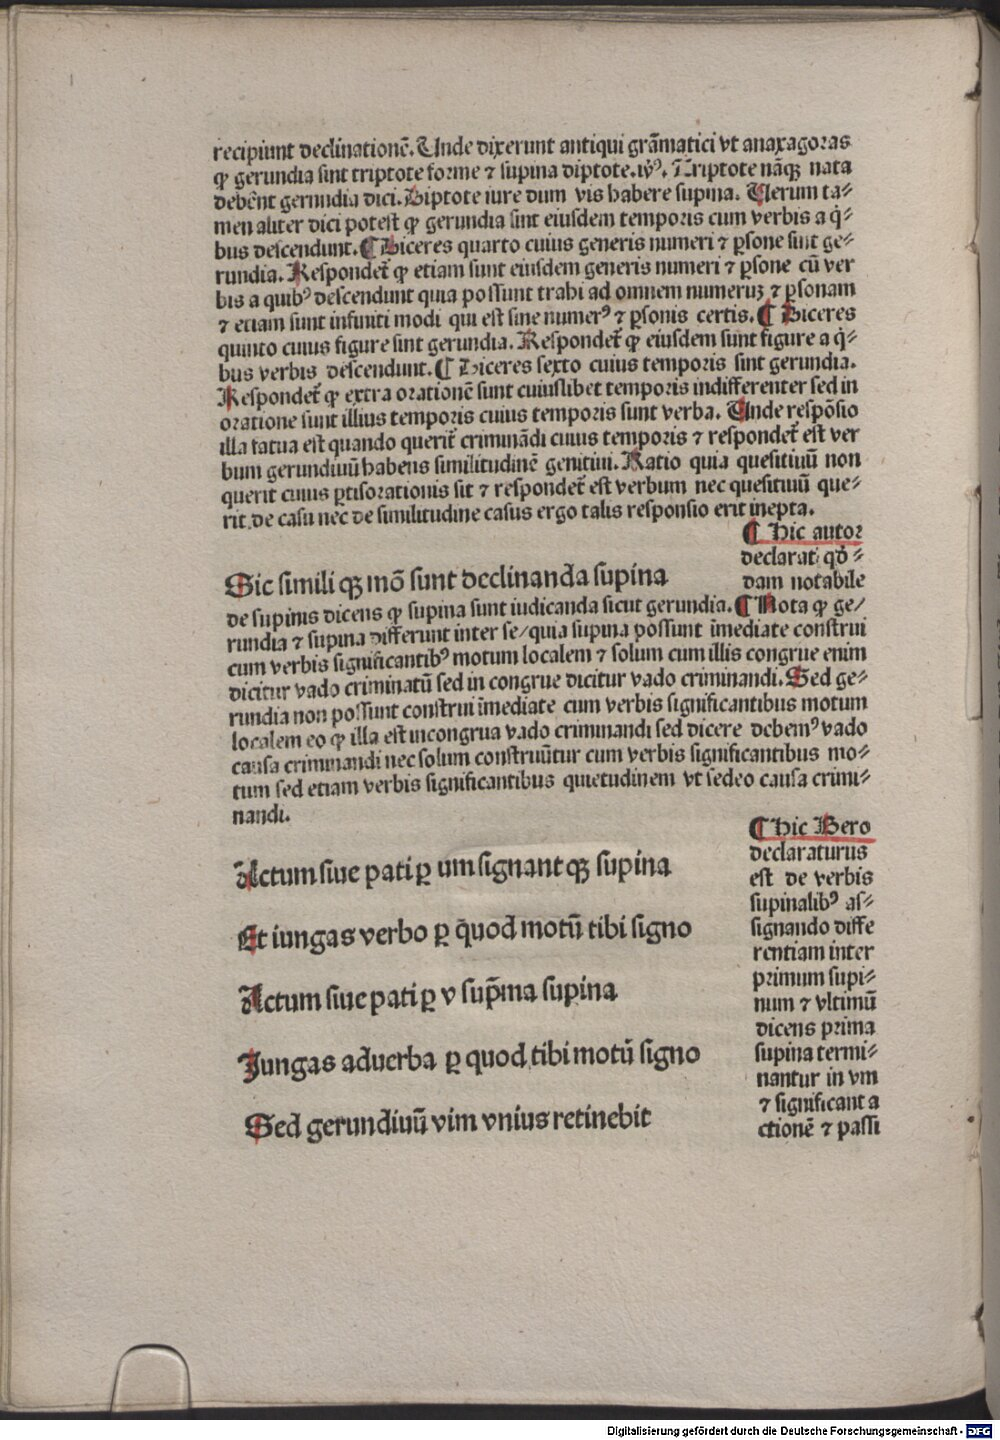 recipiunt declinationē. Unde dixerunt antiqui grāmatici vt anaxagoras
ꝙ gerundia sint triptote forme ⁊ supina diptote. Triptote nāqꝫ nata
debēnt gerundia dici. Diptote iure dum vis habere supina. Uerum ta⸗
men aliter dici potest ꝙ gerundia sint eiusdem temporis cum verbis a q̇⸗
bus descendunt. ¶ Diceres quarto cuius generis numeri ⁊ ꝑsone sint ge⸗
rundia. Respondet̄ ꝙ etiam sunt eiusdem generis numeri ⁊ ꝑsone cū ver
bis a quibꝰ descendunt quia possunt trahi ad omnem numeruꝫ ⁊ ꝑsonam
⁊ etiam sunt infiniti modi qui est sine numerꝰ ⁊ ꝑsonis certis. ¶ Diceres
quinto cuius figure sint gerundia. Respondet̄ ꝙ eiusdem sunt figure a q̇⸗
bus verbis descendunt. ¶ Diceres sexto cuius temporis sint gerundia.
Respondet̄ ꝙ extra orationē sunt cuiuslibet temporis indifferenter sed in
oratione sunt illius temporis cuius temporis sunt verba. Unde respōsio
illa fatua est quando querit̄ criminādi cuius temporis ⁊ respondet̄ est ver
bum gerundiuū habens similitudinē genitiui. Ratio quia quesitiuū non
querit cuius ꝑtisorationis sit ⁊ respondet̄ est verbum nec quesitiuū que⸗
rit de casu nec de similitudine casus ergo talis responsio erit inepta.
¶ Hic autor
declarat qd̄⸗
dam notabile
Sic simili qꝫ mō sunt declinanda supina
de supinis dicens ꝙ supina sunt iudicanda sicut gerundia. ¶ Nota ꝙ ge/
rundia ⁊ supina differunt inter se/quia supina possunt īmediate construi
cum verbis significantibꝰ motum localem ⁊ solum cum illis congrue enim
dicitur vado criminatū sed in congrue dicitur vado criminandi. Sed ge⸗
rundia non possunt construi īmediate cum verbis significantibus motum
localem eo ꝙ illa est incongrua vado criminandi sed dicere debemꝰ vado
causa criminandi nec solum construūtur cum verbis significantibus mo⸗
tum sed etiam verbis significantibus quietudinem vt sedeo causa crimi⸗
nandi.
Actum siue pati ꝑ um signant qꝫ supina
Et iungas verbo ꝑ q̄uod motū tibi signo
Actum siue pati ꝑ v sup̄ma supina
Iungas aduerba ꝑ quod tibi motū signo
Sed gerundiuū vim vnius retinebit
¶ Hic Bero
declaraturus
est de verbis
supinalibꝰ as⸗
signando diffe
rentiam inter
primum supi⸗
num ⁊ vltimū
dicens prima
supina termi⸗
nantur in vm
⁊ significant a
ctionē ⁊ passi
Digitalisierung gefördert durch die Deutsche Forschungsgemeinschaft - DFG